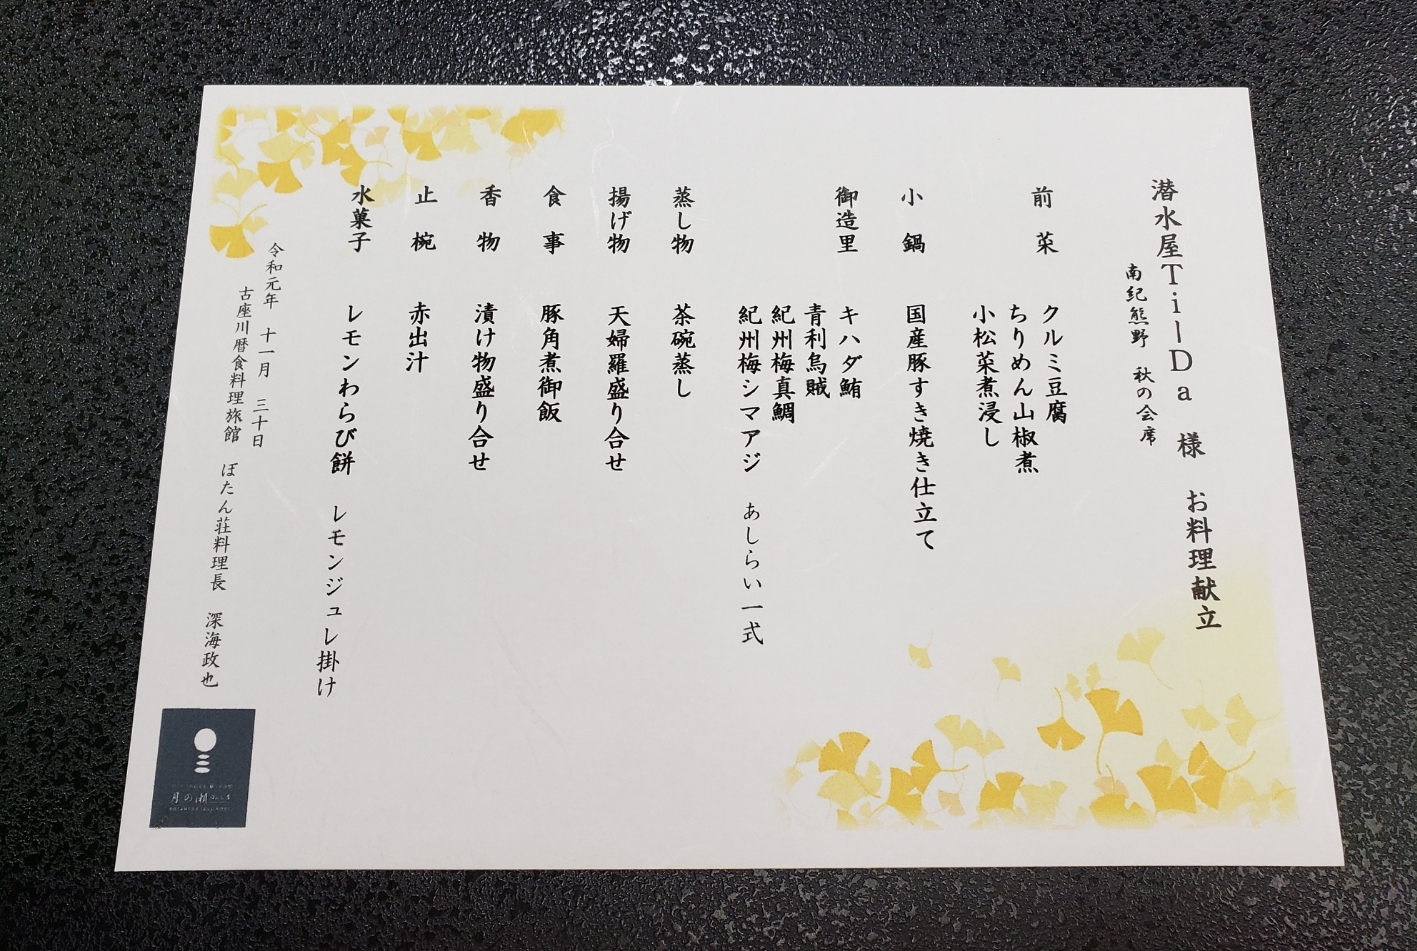 潜水屋TilDa 様 お料理献立
南紀熊野 秋の会席
前菜 クルミ豆腐
ちりめん山椒煮
小松菜煮浸し
小鍋 国産豚すき焼き仕立て
御造里 キハダ鮪
青利烏賊
紀州梅真鯛
紀州梅シマアジ あしらい一式
蒸し物 茶碗蒸し
揚げ物 天婦羅盛り合せ
食事 豚角煮御飯
香物 漬け物盛り合せ
止椀 赤出汁
水菓子 レモンわらび餅 レモンジュレ掛け
令和元年 十一月 三十日
古座川暦食料理旅館 ぼたん荘料理長 深海政也
月の瀬